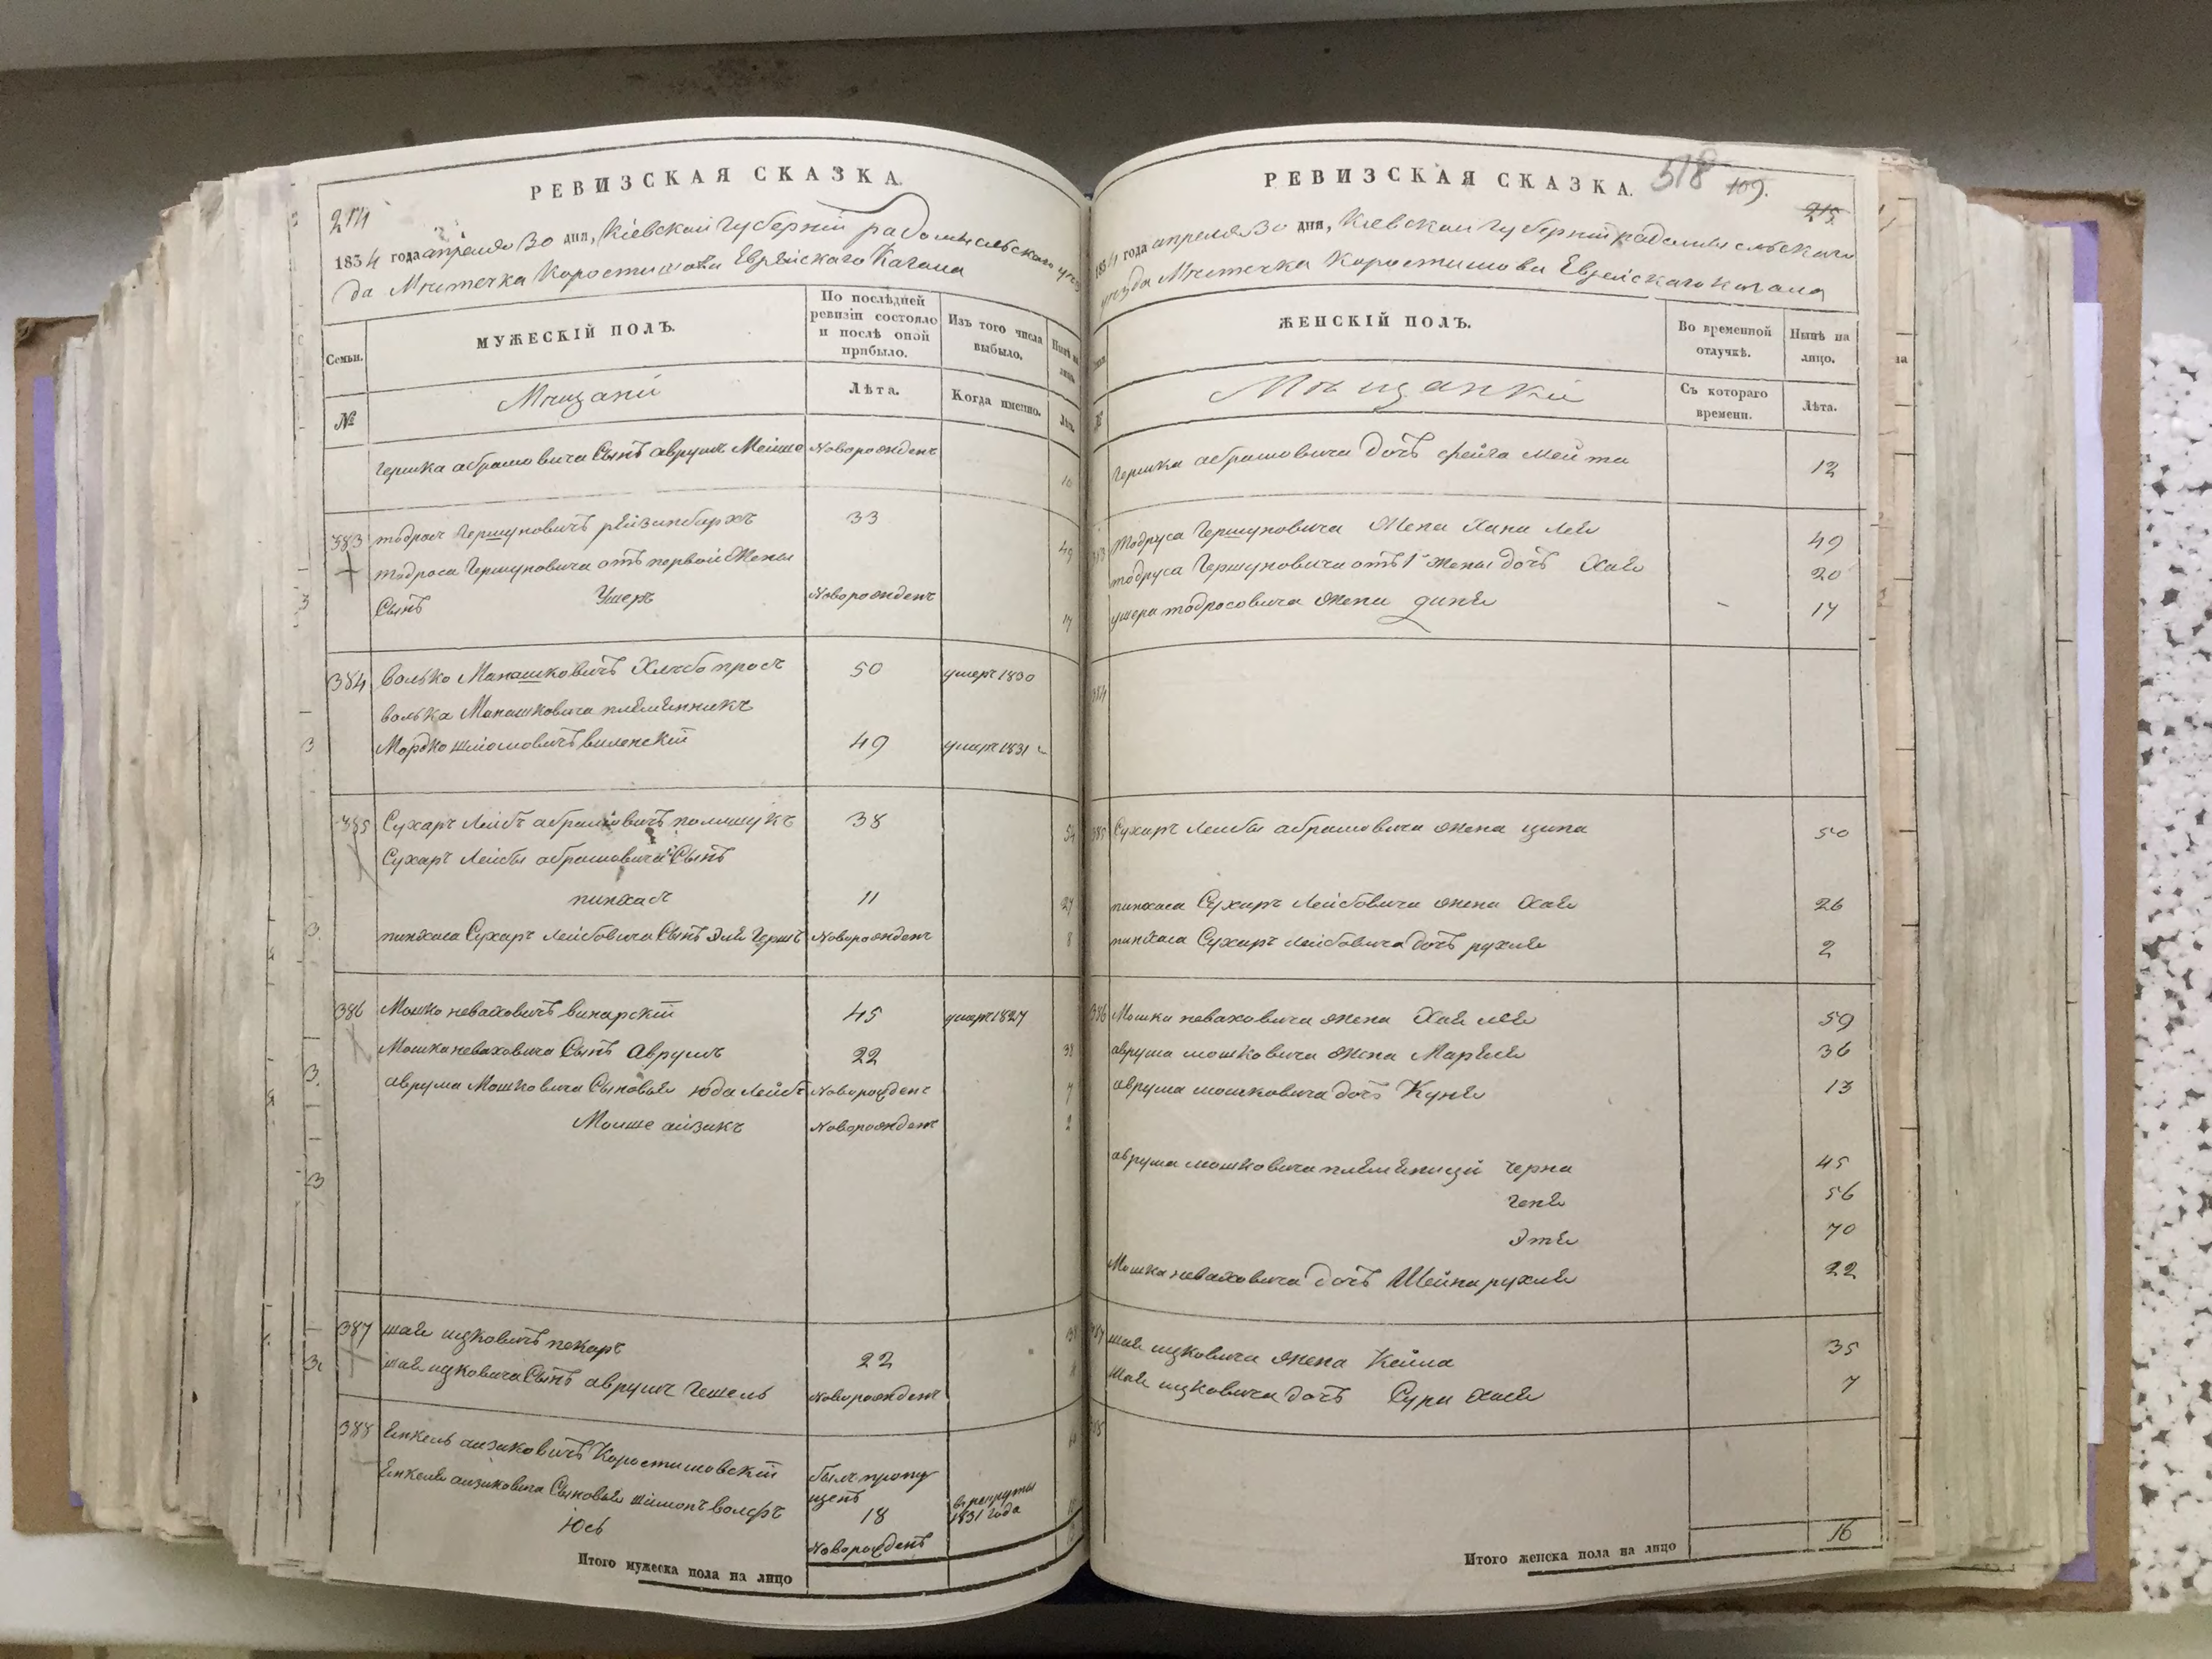 РЕВИЗСКАЯ СКАЗКА.
214
1834 года апреля 30 дня, Кіевской Губерніи радомысльского уез
да Мѣстечка Коростишова Еврейскаго Кагала
Семьи.
МУЖЕСКІЙ ПОЛЪ.
По послѣдней ревизіи состояло и послѣ оной прибыло.
Изъ того числа выбыло.
Нынѣ на лицо.
№
Мѣщани
Лѣта.
Когда именно.
Лѣт.
Гершка абрамовича Сынъ аврумъ Мойше Новорожденъ 10
383 тодрос Гершуновичъ рейзинбархъ 33 49
тодроса Гершуновича отъ первой Жены
Сынъ Ушеръ Новорожденъ 17
384 Волько Манашковичъ Хлебопросъ 50 умеръ 1830
волька Манашковича племенникъ
Мордко шліомовичъ виленскій 49 умеръ 1831
385 Сухаръ Лейбъ абрамовичъ полищукъ 38 54
Сухаръ Лейбы абрамовича Сынъ
пинхасъ 11 27
пинхаса Сухаръ Лейбовича Сынъ Эле Гершъ Новорожденъ 8
386 Мошко неваховичъ винарскій 45 умеръ 1827
Мошка неваховича Сынъ Аврумъ 22 38
аврума Мошковича Сыновья юда Лейбъ Новорожденъ 7
Моише айзикъ Новорожденъ 2
387 шая ицковичъ пекаръ 22 38
шая ицковича Сынъ аврумъ Гешель Новорожденъ 8
388 Енкель аизиковичъ Коростишовскій былъ пропу
щенъ
Енкеля аизиковича Сыновья шимонъ волфъ 18 в рекруты
1831 года
Юсь Новорожденъ
Итого мужеска пола на лицо
РЕВИЗСКАЯ СКАЗКА.
518 109.
215
1834 года апреля 30 дня, Кіевской Губерніи радомысльскаго
уезда Мѣстечка Коростишова Еврейскаго Кагала
ЖЕНСКІЙ ПОЛЪ.
Во временной отлучкѣ.
Нынѣ на лицо.
№
Мѣщанки
Съ котораго времени.
Лѣта.
Гершка абрамовича дочъ фейга Мейта 12
383 Тодруса Гершуновича Жена Хана Лея 49
тодруса Гершуновича отъ 1й жены дочъ Хая 20
ушера тодросовича жена дине 17
384
385 Сухаръ Лейбы абрамовича жена ципа 50
пинхаса Сухаръ Лейбовича жена Хая 26
пинхаса Сухаръ Лейбовича дочъ рухля 2
386 Мошка неваховича жена Хая лея 59
аврума мошковича жена Маріем 36
аврума мошковича дочъ Куня 13
аврума мошковича племеници черна 45
геня 56
Этя 70
Мошка неваховича дочъ Шейна рухля 22
387 шая ицковича жена Кейла 35
шая ицковича дочъ Сура Хася 7
388
Итого женска пола на лицо 16